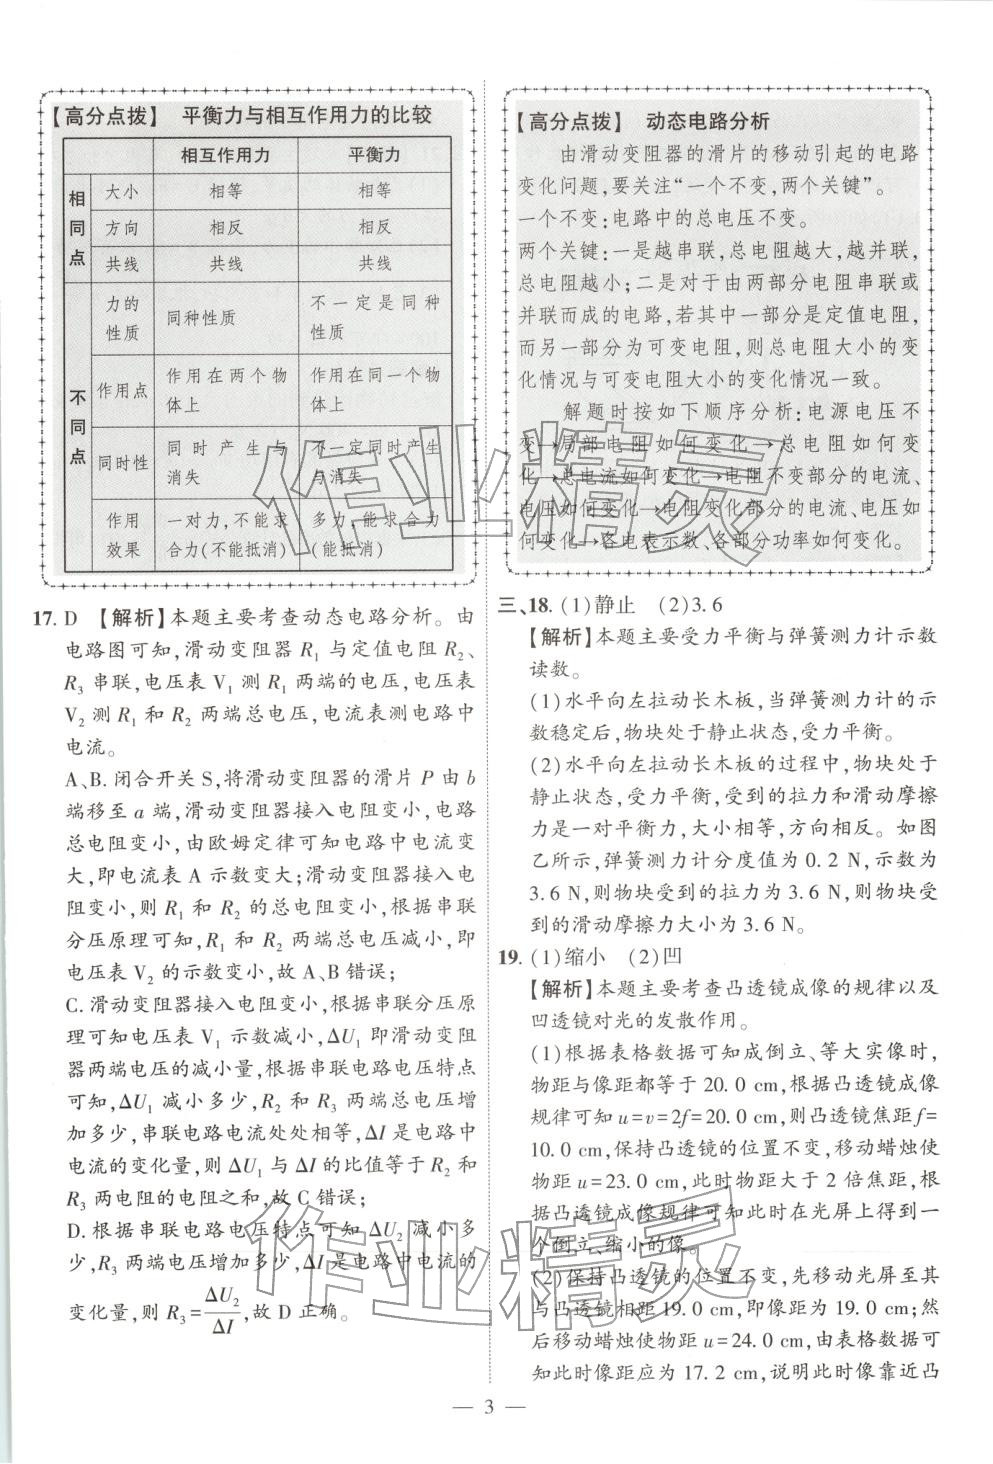 【高分点拨】 平衡力与相互作用力的比较
相互作用力 平衡力
相同点 大小 相等 相等
方向 相反 相反
共线 共线 共线
不同点 力的性质 同种性质 不一定是同种性质
作用点 作用在两个物体上 作用在同一个物体上
同时性 同时产生与消失 不一定同时产生与消失
作用效果 一对力,不能求合力(不能抵消) 多力,能求合力(能抵消)
17. D 【解析】本题主要考查动态电路分析。由
电路图可知,滑动变阻器 R₁ 与定值电阻 R₂、
R₃ 串联,电压表 V₁ 测 R₁ 两端的电压,电压表
V₂ 测 R₁ 和 R₂ 两端总电压,电流表测电路中
电流。
A、B. 闭合开关 S,将滑动变阻器的滑片 P 由 b
端移至 a 端,滑动变阻器接入电阻变小,电路
总电阻变小,由欧姆定律可知电路中电流变
大,即电流表 A 示数变大;滑动变阻器接入电
阻变小,则 R₁ 和 R₂ 的总电阻变小,根据串联
分压原理可知,R₁ 和 R₂ 两端总电压减小,即
电压表 V₂ 的示数变小,故 A、B 错误;
C. 滑动变阻器接入电阻变小,根据串联分压原
理可知电压表 V₁ 示数减小,ΔU₁ 即滑动变阻
器两端电压的减小量,根据串联电路电压特点
可知,ΔU₁ 减小多少,R₂ 和 R₃ 两端总电压增
加多少,串联电路电流处处相等,ΔI 是电路中
电流的变化量,则 ΔU₁ 与 ΔI 的比值等于 R₂ 和
R₃ 两电阻的电阻之和,故 C 错误;
D. 根据串联电路电压特点可知,ΔU₂ 减小多
少,R₃ 两端电压增加多少,ΔI 是电路中电流的
变化量,则 R₃=ΔU₂/ΔI,故 D 正确。
【高分点拨】 动态电路分析
由滑动变阻器的滑片的移动引起的电路
变化问题,要关注“一个不变,两个关键”。
一个不变:电路中的总电压不变。
两个关键:一是越串联,总电阻越大,越并联,
总电阻越小;二是对于由两部分电阻串联或
并联而成的电路,若其中一部分是定值电阻,
而另一部分为可变电阻,则总电阻大小的变
化情况与可变电阻大小的变化情况一致。
解题时按如下顺序分析:电源电压不
变→局部电阻如何变化→总电阻如何变
化→总电流如何变化→电阻不变部分的电流、
电压如何变化→电阻变化部分的电流、电压如
何变化→各电表示数、各部分功率如何变化。
三、18. (1)静止 (2)3.6
【解析】本题主要受力平衡与弹簧测力计示数
读数。
(1)水平向左拉动长木板,当弹簧测力计的示
数稳定后,物块处于静止状态,受力平衡。
(2)水平向左拉动长木板的过程中,物块处于
静止状态,受力平衡,受到的拉力和滑动摩擦
力是一对平衡力,大小相等,方向相反。如图
乙所示,弹簧测力计分度值为 0.2 N,示数为
3.6 N,则物块受到的拉力为 3.6 N,则物块受
到的滑动摩擦力大小为 3.6 N。
19. (1)缩小 (2)凹
【解析】本题主要考查凸透镜成像的规律以及
凹透镜对光的发散作用。
(1)根据表格数据可知成倒立、等大实像时,
物距与像距都等于 20.0 cm,根据凸透镜成像
规律可知 u=v=2f=20.0 cm,则凸透镜焦距 f=
10.0 cm,保持凸透镜的位置不变,移动蜡烛使
物距 u=23.0 cm,此时物距大于 2 倍焦距,根
据凸透镜成像规律可知此时在光屏上得到一
个倒立、缩小的像。
(2)保持凸透镜的位置不变,先移动光屏至其
与凸透镜相距 19.0 cm,即像距为 19.0 cm;然
后移动蜡烛使物距 u=24.0 cm,由表格数据可
知此时像距应为 17.2 cm,说明此时像靠近凸
作业精灵
作业精灵
— 3 —